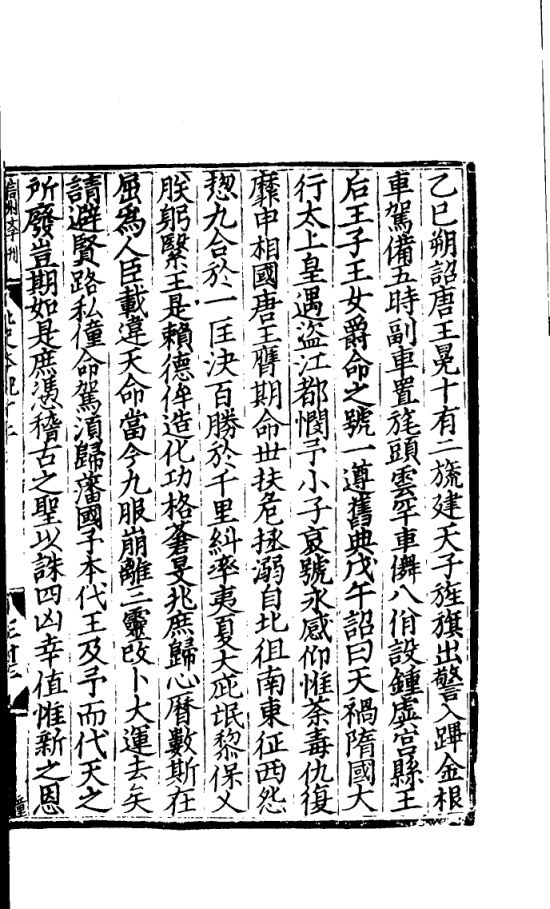 乙巳朔詔唐王冕十有二旒建天子旌旗出警入蹕金根
車駕備五時副車置旄頭雲䍐車儛八佾設鍾虡宮縣王
后王子王女爵命之號一遵舊典戊午詔曰天禍隋國大
行太上皇遇盜江都憫予小子哀號永感仰惟荼毒仇復
靡申相國唐王膺期命世扶危拯溺自北徂南東征西怨
揔九合於一匡決百勝於千里糾率夷夏大庇氓黎保乂
朕躬繄王是賴德侔造化功格蒼旻兆庶歸心曆數斯在
屈為人臣載違天命當今九服崩離三靈改卜大運去矣
請避賢路私僮命駕湏歸藩國予本代王及予而代天之
所廢豈期如是庶憑稽古之聖以誅四凶幸值惟新之恩
北史本紀十二